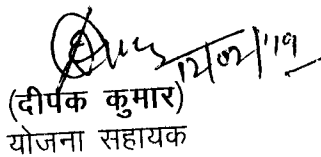 12/02/'19
(दीपक कुमार)
योजना सहायक